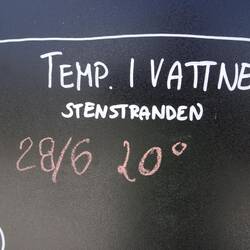 TEMP. I VATTNE
STENSTRANDEN
28/6 20°